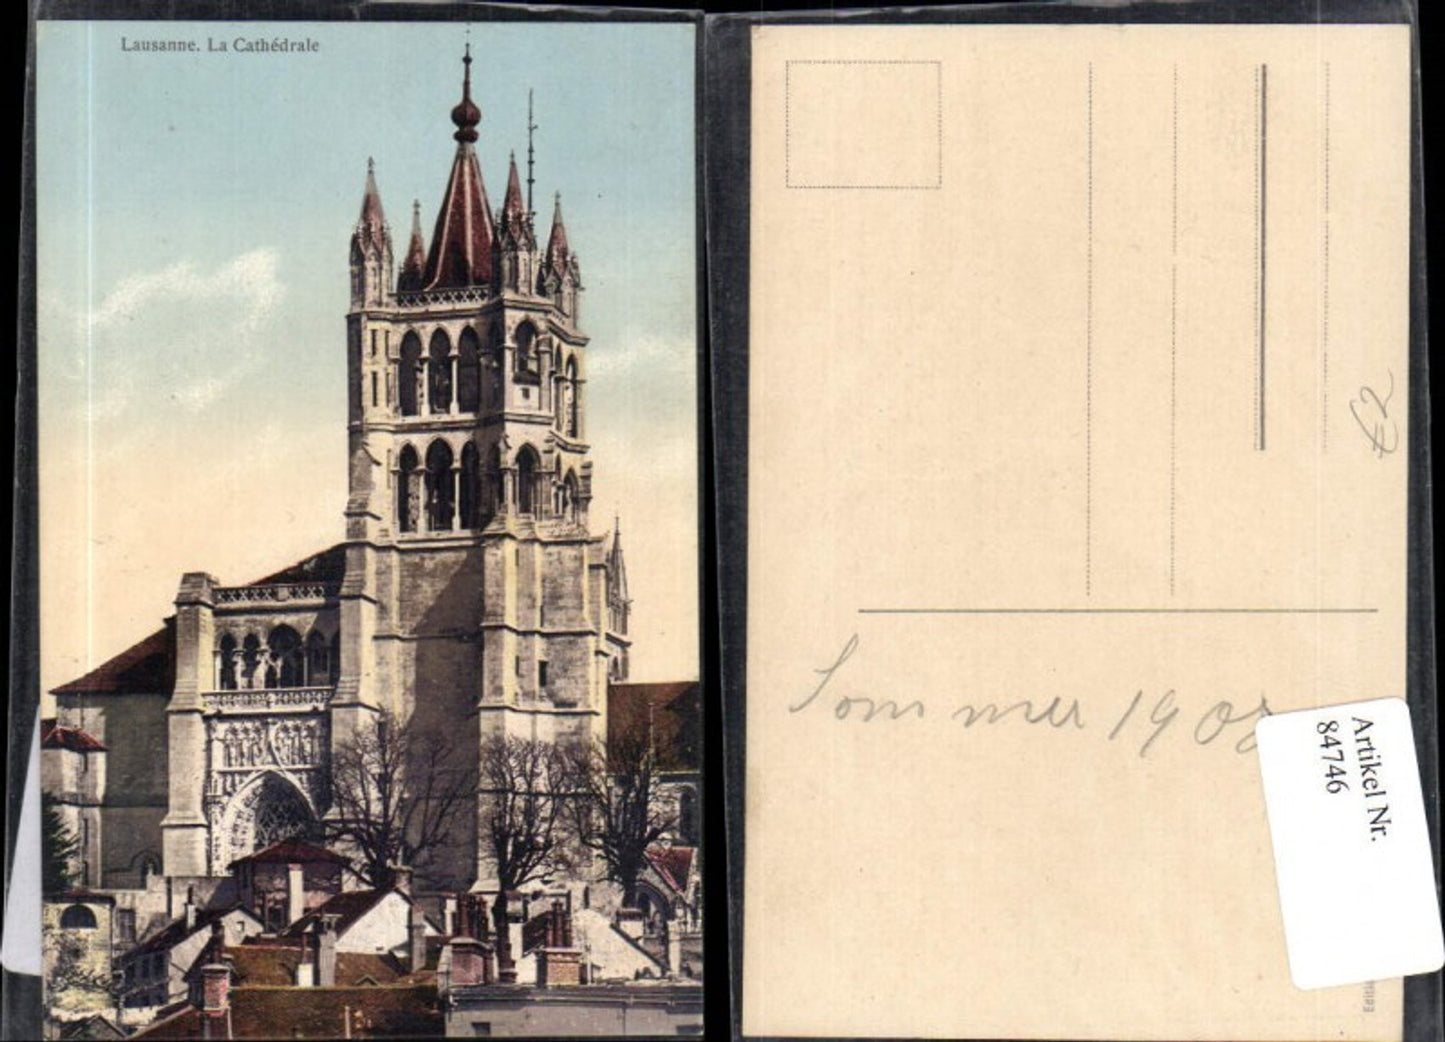 Lausanne. La Cathédrale
Sommer 1908
Artikel Nr.
84746